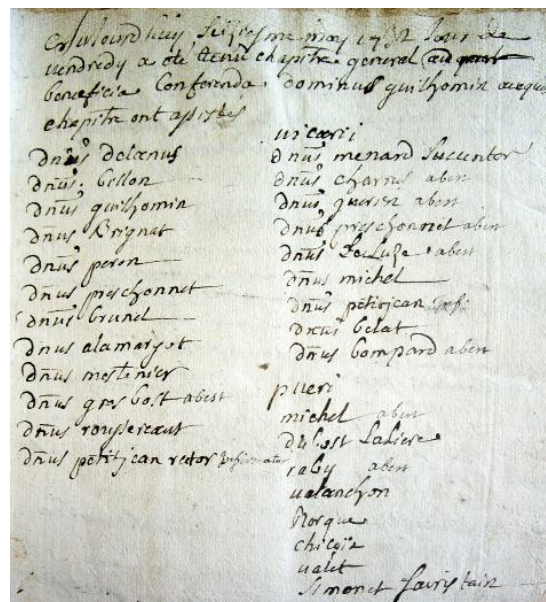 Cejourdhuy seiziesme may 1732 jour de
vendredy a été tenu chapitre general ad
beneficia Conferenda dominus guilhomin
chapitre ont assistes
dnus decanus
dnus bellon
dnus guilhomin
dnus Brignat
dnus peron
dnus preschonnet
dnus brunel
dnus alamargot
dnus mestenier
dnus gros bost abest
dnus rousereaut
dnus petitjean rector infirmatur
vicarii
dnus menard succentor
dnus charnus abest
dnus guerin abest
dnus preschonnet abest
dnus DeLuze abest
dnus michel
dnus petitjean
dnus belat
dnus bompard abest
pueri
michel abest
dubost Laliere
raby abest
valanchon
Rorque
chicois
valet
simonet